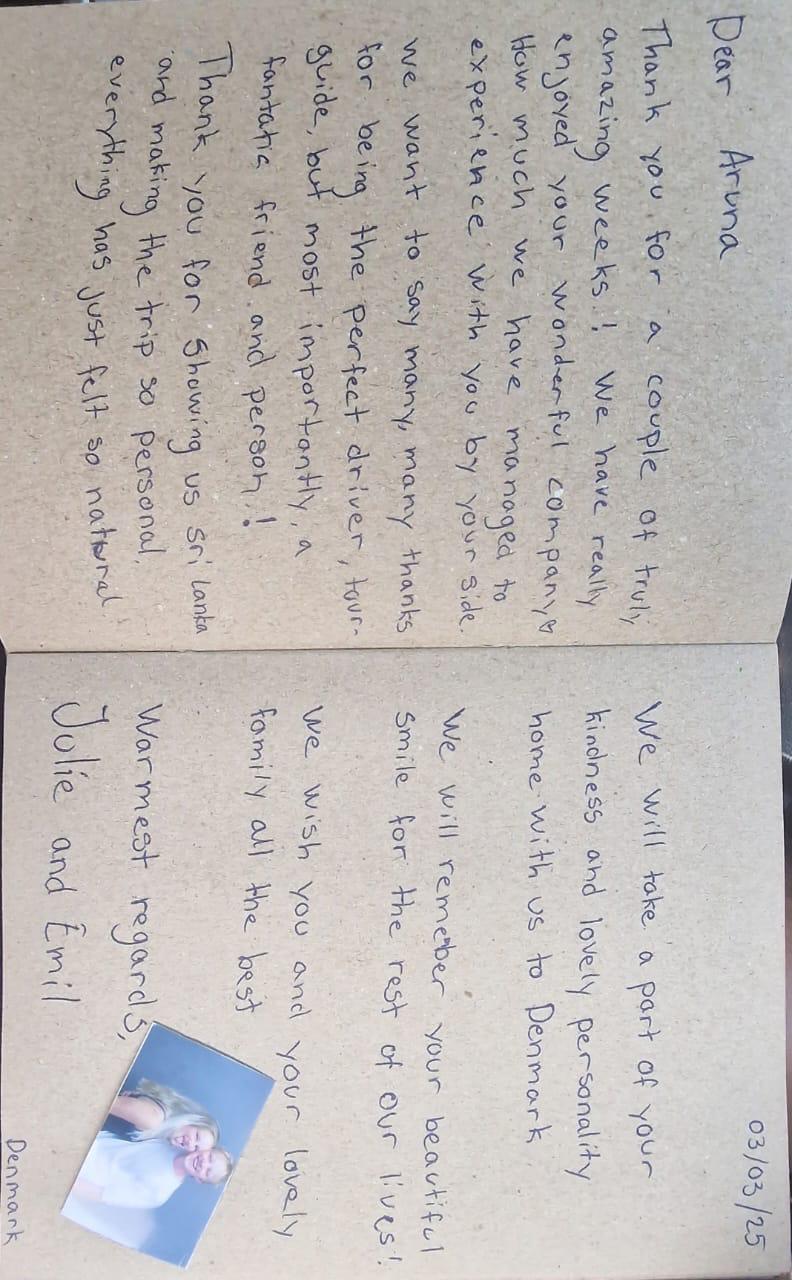 Dear Aruna
Thank you for a couple of truly
amazing weeks! We have really
enjoyed your wonderful company♡
How much we have managed to
experience with you by your side.
We want to say many, many thanks
for being the perfect driver, tour-
guide, but most importantly, a
fantatis friend and person!
Thank you for showing us sri lanka
and making the trip so personal,
everything has just felt so natural.
03/03/25
We will take a part of your
kindness and lovely personality
home with us to Denmark
We will remember your beautiful
smile for the rest of our lives!
We wish you and your lovely
family all the best
Warmest regards,
Julie and Emil
Denmark